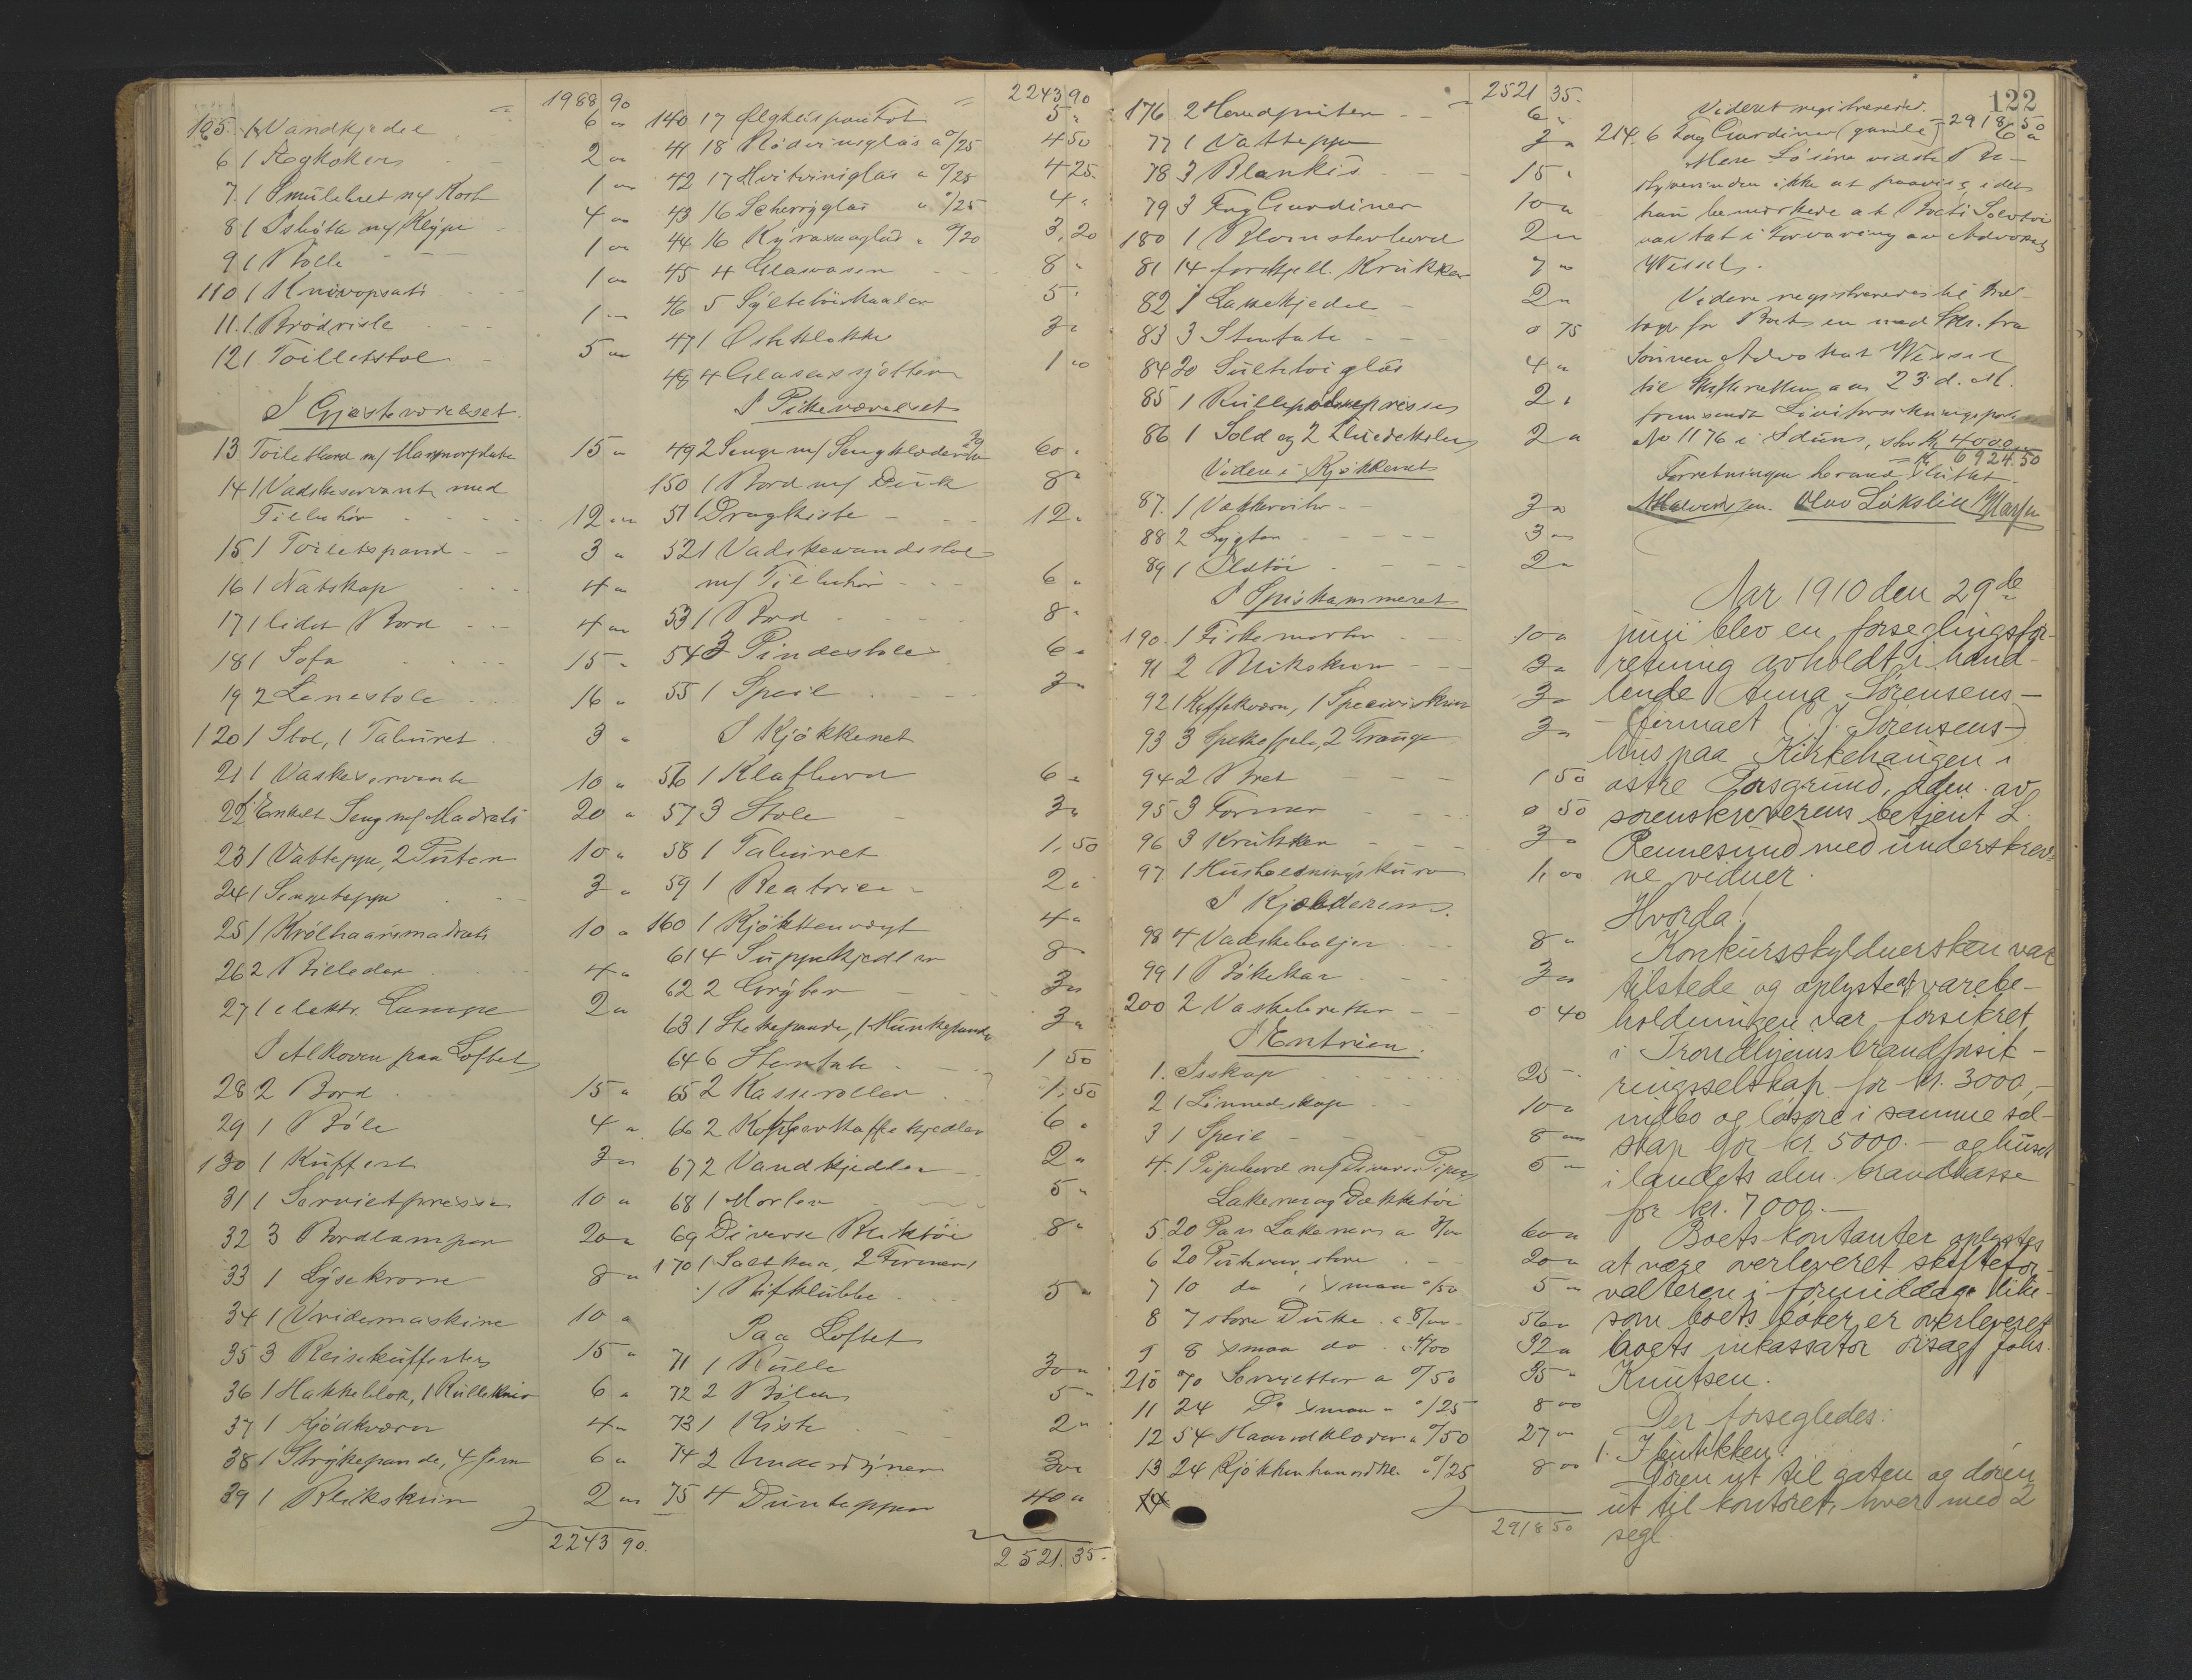 1988 90
105. 1 Vandkjedel 6 "
6 1 Ægkoker 2 "
7. 1 Smulebret m/ Kost 1 "
8 1 Isbøtte m/ Klype 4 "
9 1 Bolle 1 "
110 1 Knivopsats 1 "
11. 1 Brødrist 1 "
12 1 Toiletstol 5 "
I Gjesteværelset.
13 Toiletbord m/ Marmorplate 15 "
14 1 Vadskeservant med
Tilbehør 12 "
15 1 Toiletspand 3 "
16 1 Natskap 4 "
17 1 lidet Bord 4 "
18 1 Sofa 15 "
19 2 Lenestole 16 "
120 1 Stol, 1 Taburet 3 "
21 1 Vaskeservante 10 "
22 1 Enkelt Seng m/ Madrats 20 "
23 1 Vatteppe, 2 Puter 10 "
24 1 Sengeteppe 3 "
25 1 Krølhaarsmadrats 10 "
26 2 Billeder 4 "
27 1 elektr. Lampe 2 "
I Alkoven paa Loftet
28 2 Bord 15 "
29 1 Bøle 4 "
130 1 Kuffert 3 "
31 1 Servietpresse 10 "
32 3 Bordlamper 20 "
33 1 Lysekrone 8 "
34 1 Vridemaskine 10 "
35 3 Reisekufferter 15 "
36 1 Hakkeblok, 1 Rullekniv 6 "
37 1 Kjødkværn 4 "
38 1 Strykepande, 4 Jern 6 "
39 1 Blikskrin 2 "
2243 90.
2243 90
140 17 Ølglas 5 "
41 18 Rødvinsglas a 0/25 4 50
42 17 Hvitvinsglas a 0/25 4 25.
43 16 Scherryglas a 0/25 4 "
44 16 glas a 0/20 3,20
45 4 Glasvaser 8 "
46 5 Syltetøiskaaler 5 "
47 1 Osteklokke 3 "
48 4 Glasassjetter 1 "
I Pikeværelset
49 2 Senge m/ Sengklæder 60 "
150 1 Bord m/ Duk 8 "
51 1 Dragkiste 12 "
52 1 Vadskevandsstol
m/ Tilbehør 6 "
53 1 Bord 8 "
54 3 Pindestoler 6 "
55 1 Speil 3 "
I Kjøkkenet
56 1 Klafbord 6 "
57 3 Stole 3 "
58 1 Taburet 1,50
59 1 Beatrice 2 "
160 1 Kjøkkenvægt 4 "
61 4 Suppekjedler 8 "
62 2 Gryter 3 "
63 1 Stekepande, 1 Munkepande 3 "
64 6 Stenfate 1 50
65 2 Kasseroller 1,50
66 2 Kobberkaffekjedler 6 "
67 2 Vandkjedler 2 "
68 1 Morter 5 "
69 Diverse Bliktøi 8 "
170 1 Saltkar, 2 Former,
1 Bifklubbe 5 "
Paa Loftet
71 1 Rulle 30 "
72 2 Bøler 5 "
73 1 Kiste 2 "
74 2 Underdyner 30 "
75 4 Duntepper 40 "
2521.35-
2521 35.
176 2 Hovedputer 6 "
77 1 Vatteppe 3 "
78 3 Blankis 15 "
79 3 Fag Gardiner 10 "
180 1 Blomsterbord 2 "
81 14 forskjell. Krukker 7 "
82 1 Laxekjedel 2 "
83 3 Stenfate 0 75
84 20 Sultetøiglas 4 "
85 1 Rullepølsepresse 2 "
86 1 Sold og 2 2 "
Videre i Kjøkkenet
87. 1 Vækkerur 3 "
88 2 Lygter 3 "
89 1 Ildtøi 2 "
I Spiskammeret
190. 1 Fiskemorter 10 "
91 2 Blikskrin 3 "
92 1 Kaffekværn, 1 Speceriskrin 3 "
93 3 2 Trauge 3 "
94 2 Bret 1 50
95 3 Former 0 50
96 3 Krukker 3 "
97 1 Husholdningskurv 1,00
I Kjælderen.
98 4 Vadskebaljer 8 "
99 1 Bøkekar 3 "
200 2 Vaskebretter 0 40
I Entréen.
1. Isskap 25
2 1 Linnedskap 10 "
3 1 Speil 8 "
4. 1 Pipebord m/ Diverse Piper 5 "
Lakener og Dækketøi
5 20 Par Lakener a 3/00 60 "
6 20 Putevar, store 20 "
7 10 do smaa 0/50 5 "
8 7 store Duke a 8/00 56 "
9 8 smaa do 4/00 32 "
210 70 Servietter a 0/50 35 "
11 24 Do smaa a 0/25 8 00
12 54 Haandklæder a 0/50 27 "
13 24 Kjøkkenhaandkl. 0/25 8 00
14
2918 50
122
Videre registreredes.
2918 50
214. 6 Fag Gardiner (gamle) 6 "
Mere Løsøre vidste Be-
styrerinden ikke at paavise, idet
hun bemerkede at Boets Sølvtøi
var tat i Forvaring av Advokat
Wessel.
Videre registreredes til Ind-
tægt for Boet en med Skr. fra
Sønnen Advokat Wessel
til Skifteretten av 23 d. M.
fremsendt Livsforsikringspolice
No 1176 i Iduns, stor Kr 4000
Kr 6924.50
Forretningen herand sluttet.
Olav Løkslie
Aar 1910 den 29de
juni blev en forseglingsfor-
retning avholdt i hand-
lende Anna Sørensens -
- (firmaet C. J. Sørensens -)
hus paa Kirkehaugen i
østre Porsgrund, adm. av
sorenskriverens betjent L.
Rennesund med underskrev-
ne vidner.
Hvorda!
Konkursskyldnersken var
tilstede og oplyste at varebe-
holdningen var forsikret
i Trondhjems brandforsik-
ringsselskap for kr. 3000,-
indbo og løsøre i samme sel-
skap for kr. 5000.- og huset
i landets alm. brandkasse
for kr. 7000.-
Boets kontanter oplystes
at være overleveret skiftefor-
valteren i formiddag, like-
som boets bøker er overleveret
boets inkassator Johs.
Knutsen.
Der forsegledes:
1. I butikken:
Døren ut til gaten og døren
ut til kontoret, hver med 2
segl.